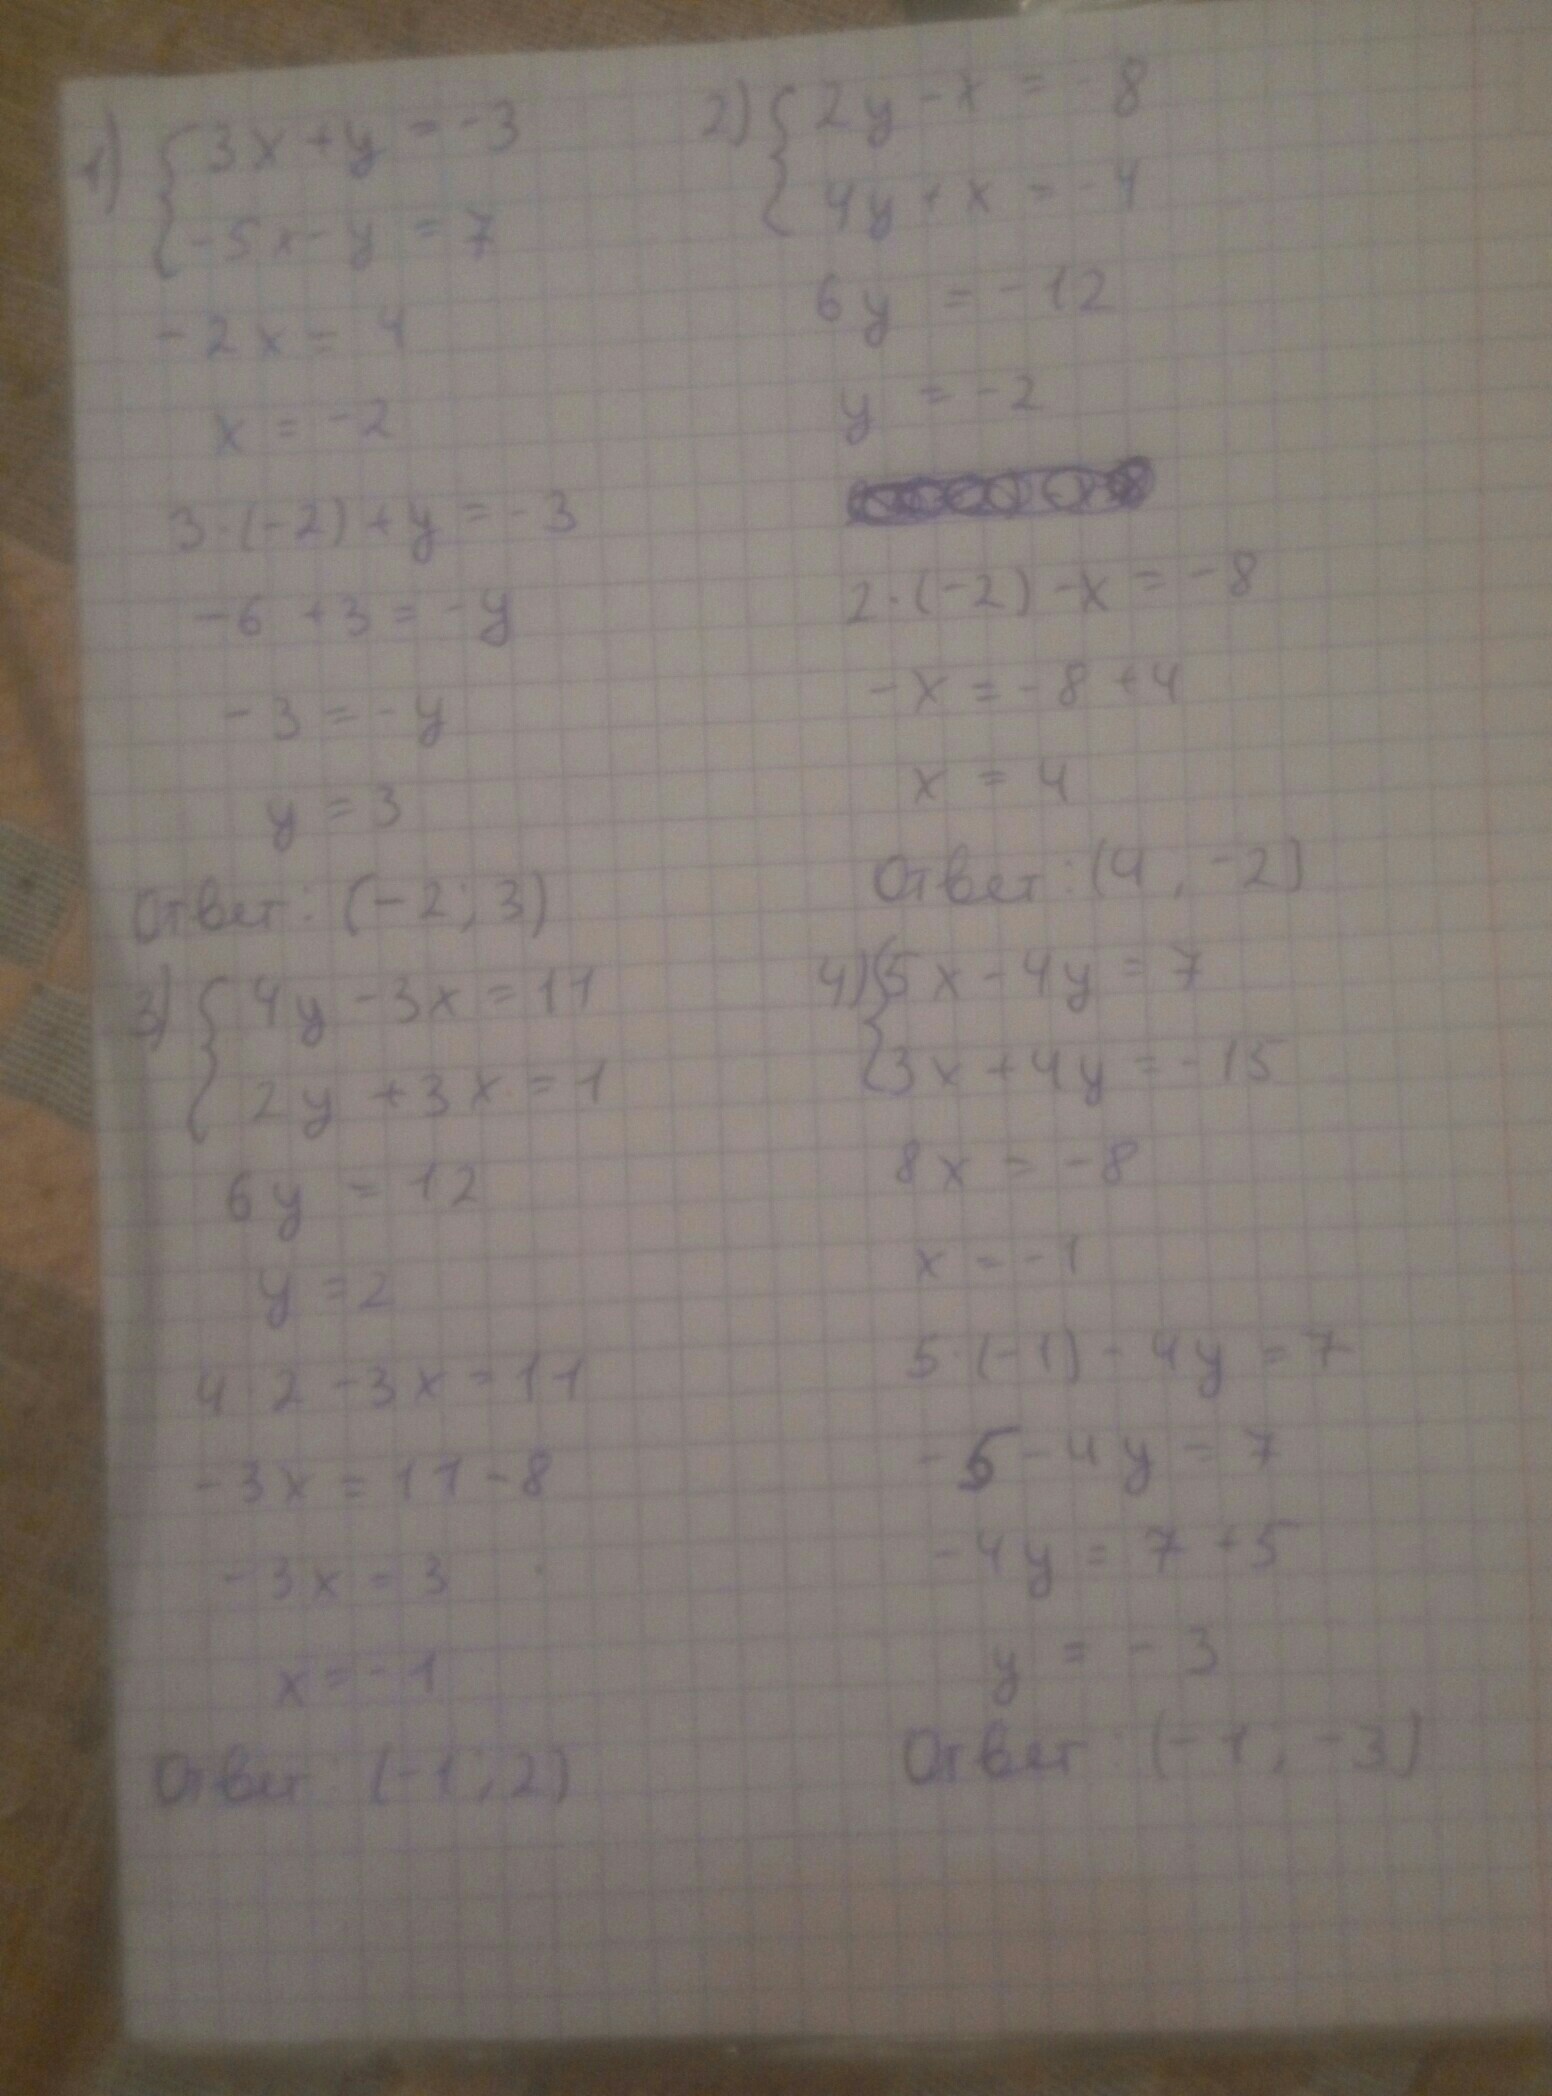 1) { 3x + y = -3
-5x - y = 7
-2x = 4
x = -2
3·(-2) + y = -3
-6 + 3 = -y
-3 = -y
y = 3
Ответ: (-2; 3)
2) { 2y - x = -8
4y + x = -4
6y = -12
y = -2
2·(-2) - x = -8
-x = -8 + 4
x = 4
Ответ: (4, -2)
3) { 4y - 3x = 11
2y + 3x = 1
6y = 12
y = 2
4·2 - 3x = 11
-3x = 11 - 8
-3x = 3
x = -1
Ответ: (-1; 2)
4) { 5x - 4y = 7
3x + 4y = -15
8x = -8
x = -1
5·(-1) - 4y = 7
-5 - 4y = 7
-4y = 7 + 5
y = -3
Ответ: (-1; -3)